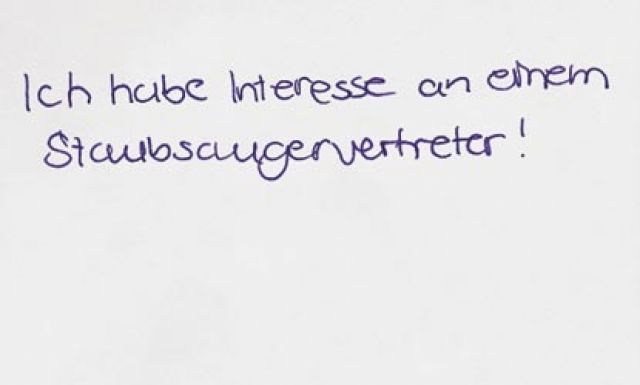 Ich habe Interesse an einem
Staubsaugervertreter!